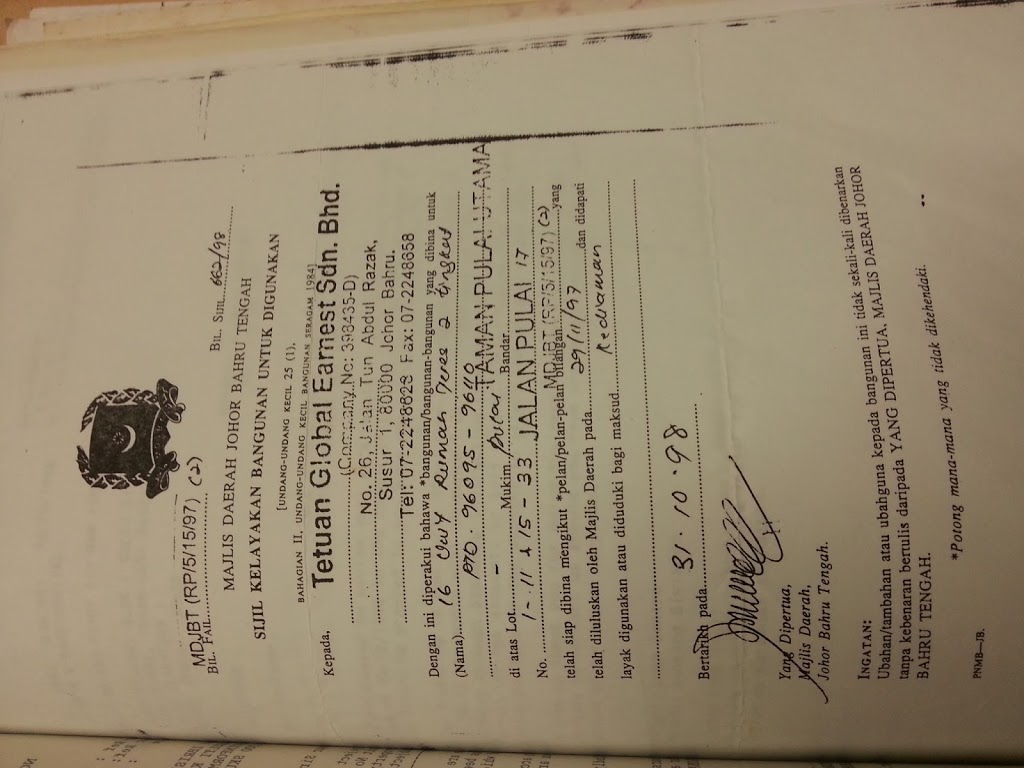 MDJBT (RP/5/15/97) (2)
BIL. FAIL
BIL. SIJIL 662/98
MAJLIS DAERAH JOHOR BAHRU TENGAH
SIJIL KELAYAKAN BANGUNAN UNTUK DIGUNAKAN
[UNDANG-UNDANG KECIL 25 (1),
BAHAGIAN II, UNDANG-UNDANG KECIL BANGUNAN SERAGAM 1984]
Kepada,
Tetuan Global Earnest Sdn. Bhd.
(Company No: 398435-D)
No. 26, Jalan Tun Abdul Razak,
Susur 1, 80000 Johor Bahru.
Tel: 07-2248828 Fax: 07-2248858
Dengan ini diperakui bahawa *bangunan/bangunan-bangunan yang dibina untuk
(Nama) 16 Unit Rumah Teres 2 Tingkat
PTD. 96095 - 96110 TAMAN PULAI UTAMA
di atas Lot - Mukim Pulai Bandar
No. 1 - 11 & 15 - 33 JALAN PULAI 17
MDJBT (RP/5/15/97) (2)
telah siap dibina mengikut *pelan/pelan-pelan bilangan yang
telah diluluskan oleh Majlis Daerah pada 29/11/97 dan didapati
layak digunakan atau diduduki bagi maksud Kediaman
Bertarikh pada 31.10.98
Yang Dipertua,
Majlis Daerah,
Johor Bahru Tengah.
INGATAN:
Ubahan/tambahan atau ubahguna kepada bangunan ini tidak sekali-kali dibenarkan
tanpa kebenaran bertulis daripada YANG DIPERTUA, MAJLIS DAERAH JOHOR
BAHRU TENGAH.
*Potong mana-mana yang tidak dikehendaki.
PNMB—JB.